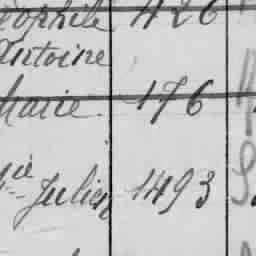 éophile 426
Antoine
Marie. 176
Cie Julien 1493